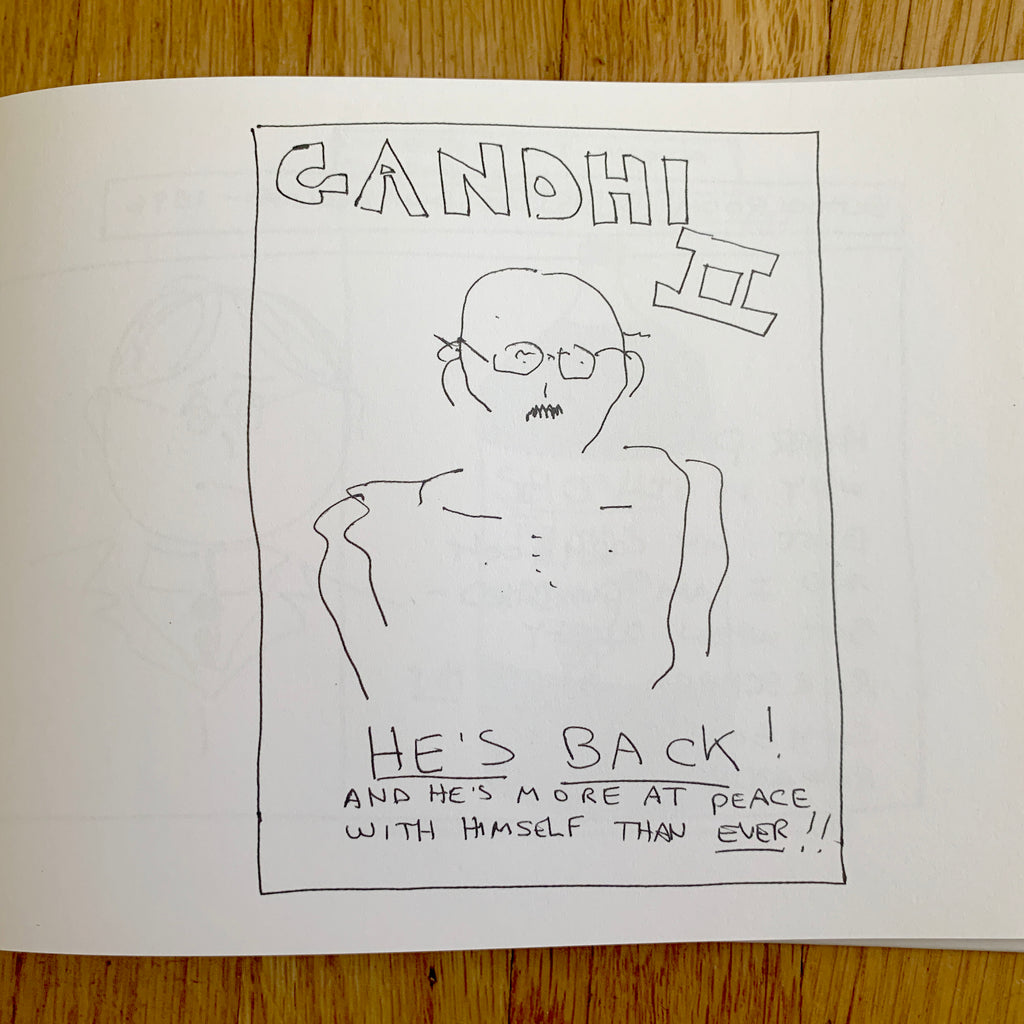 GANDHI
II
HE'S BACK!
AND HE'S MORE AT PEACE
WITH HIMSELF THAN EVER!!